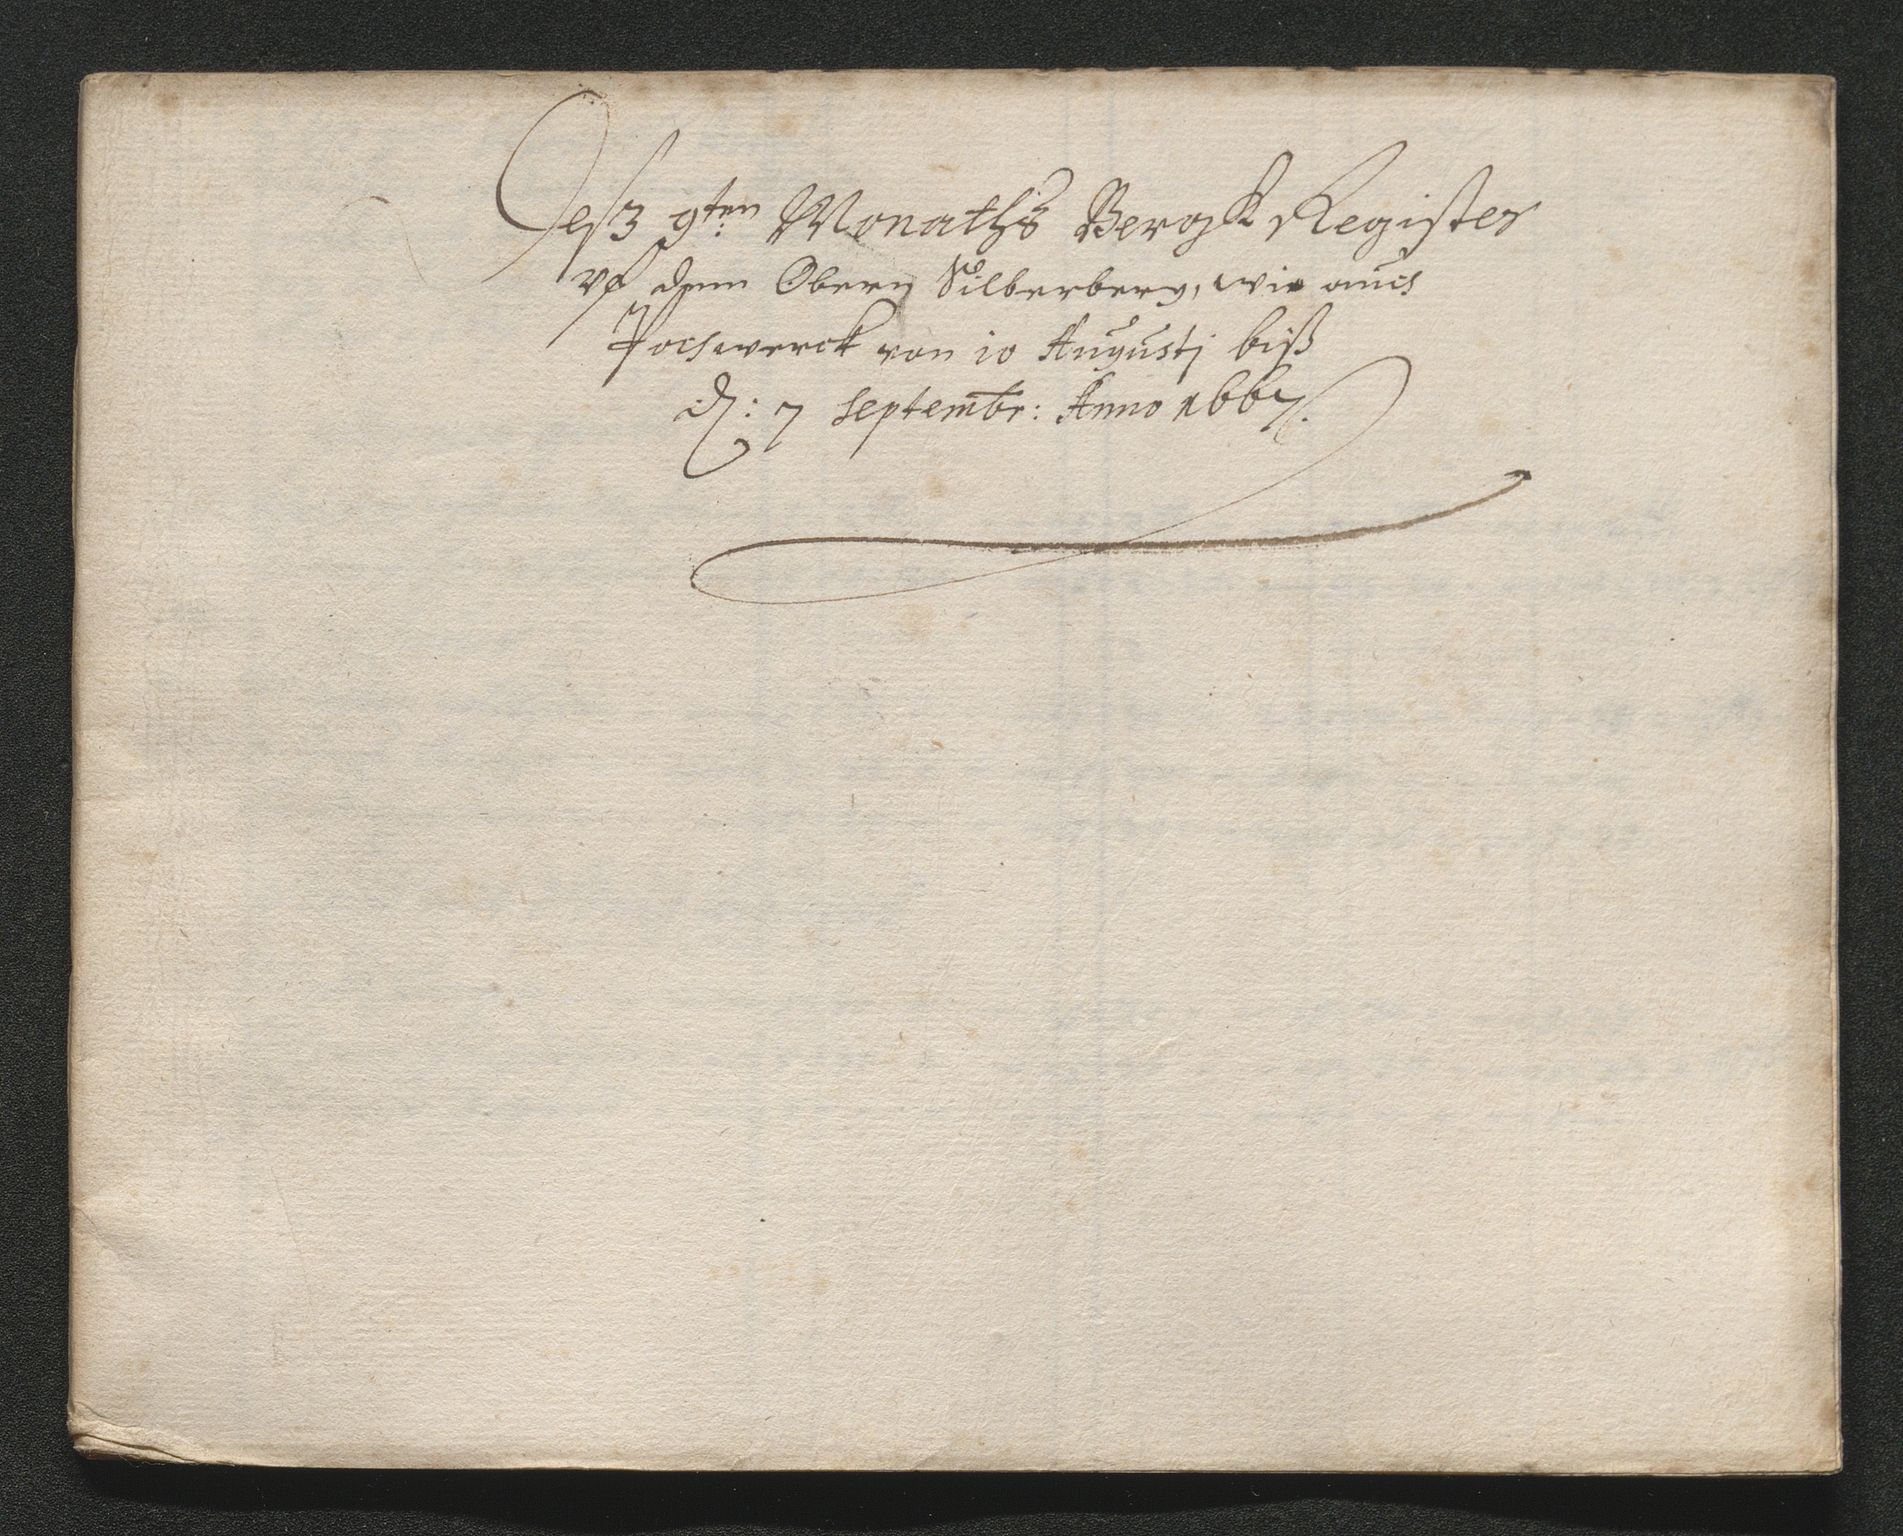 Deß 9ten: Monaths Bergk Register
vf dem Obern Silberberg, wie auch
Pochwerck von 10 Augustj biß
d: 7 Septembr: Anno 1667.